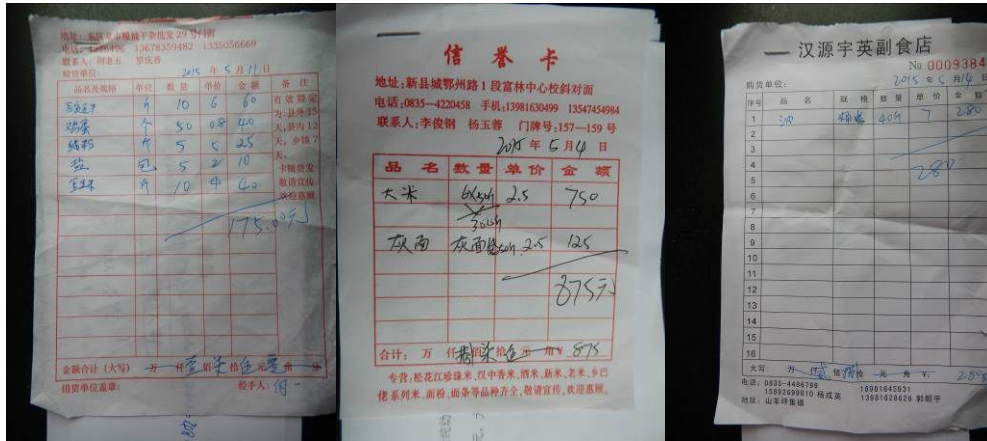 电话：4286496 13678359482 1335056669
联系人：何老五 罗庆香
购货单位：
2015 年 5 月 11 日
品名及规格 单位 数量 单价 金额 备注
斤 10 6 60
鸡蛋 个 50 0.8 40
斤 5 5 25
盐 包 5 2 10
斤 10 4 40
有效期定
为：县外15
天，县内12
天，乡镇7
天。
卡随货发
敬请宣传
欢迎惠顾
175.00元
金额合计（大写） 万 仟 壹 佰 柒 拾 伍 元 角 分
销货单位盖章： 经手人：何一
信誉卡
地址：新县城鄂州路1段富林中心校斜对面
电话：0835—4220458 手机：13981630499 13547454984
联系人：李俊钢 杨玉蓉 门牌号：157—159号
2015 年 5 月 4 日
品名 数量 单价 金额
大米 6X50斤 2.5 750
300斤
灰面 灰面 50斤 2.5 125
875元
合计： 万 仟 捌 佰 柒 拾 伍 元 角¥ 875
专营：松花江珍珠米、汉中香米、酒米、新米、老米、乡巴
佬系列米、面粉、面条等品种齐全，敬请宣传，欢迎惠顾。
汉源宇英副食店
No 0009384
购货单位： 2015 年 5 月 14 日
序号 品名 规格 数量 单价 金额
1 油 40斤 7 280
2
3
4 280
5
6
7
8
9
10
11
12
13
14
15
16
大写 万 仟 贰 佰 捌 拾 元 角 ¥ 280
电话：0835-4486799 18981645931
15892699810 杨成英 13981628626 郭朝宇
地址：山羊坪集镇